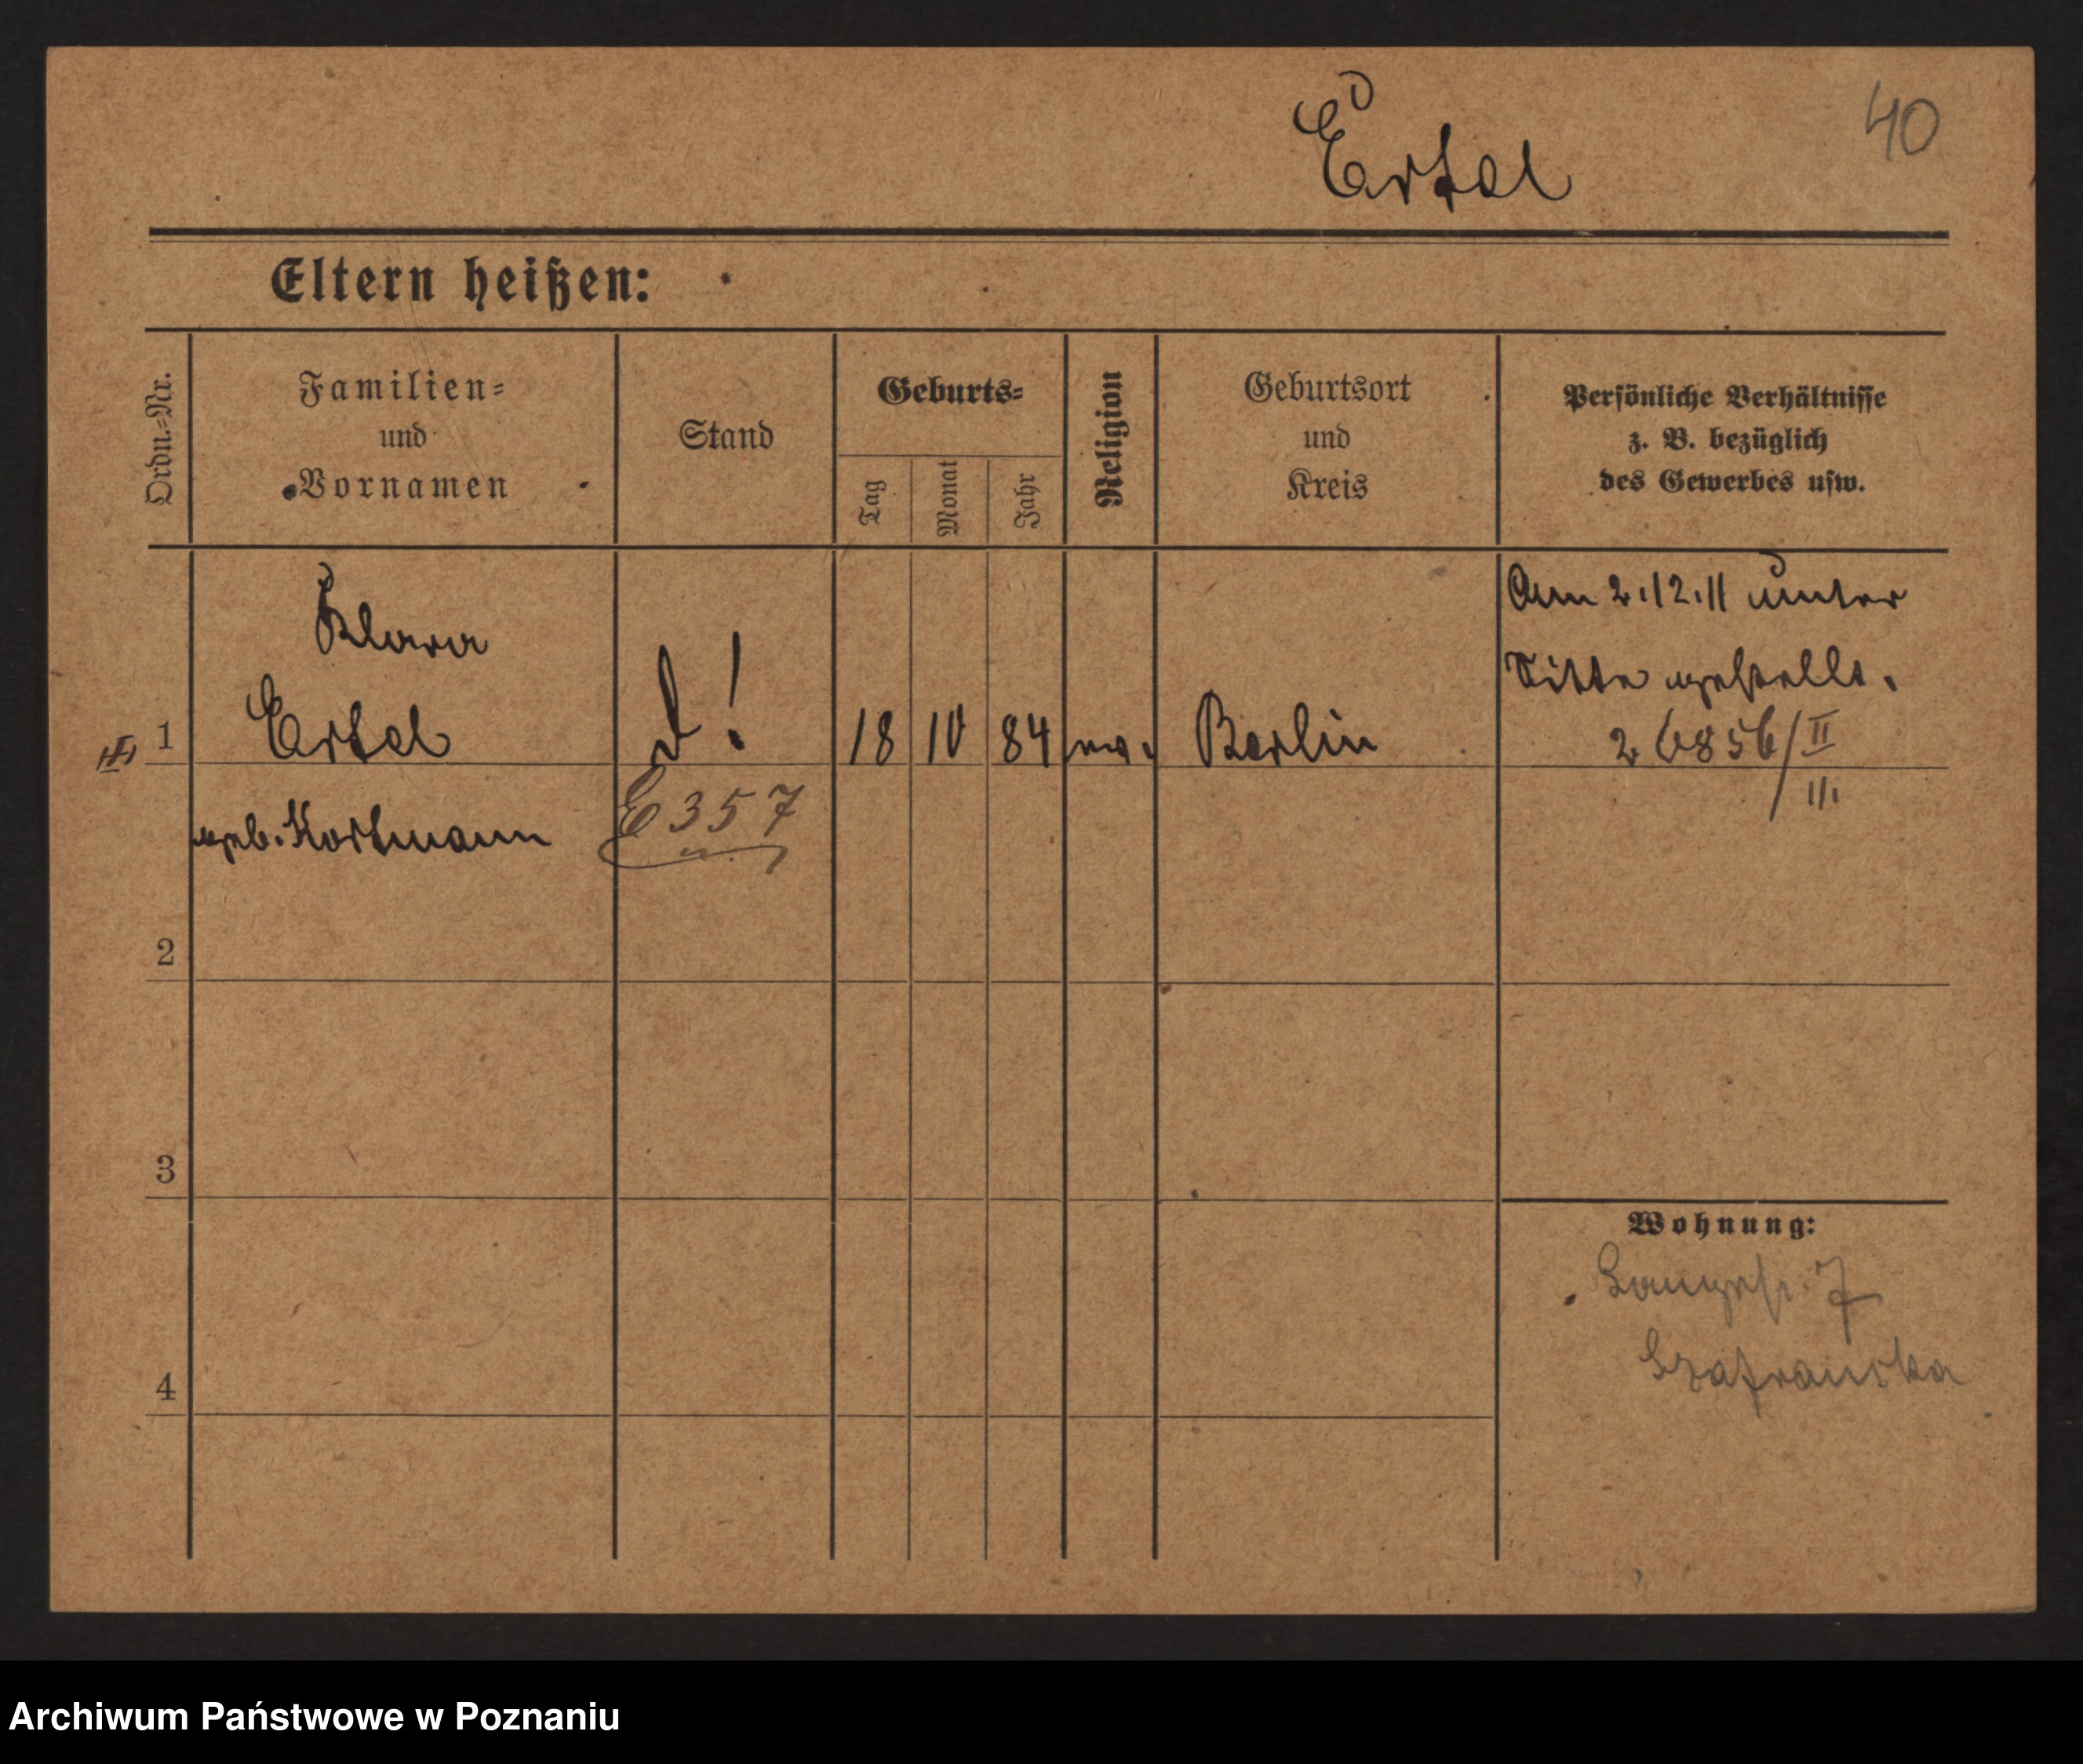 40
Ertel
Eltern heißen:
Ordn.-Nr.
Familien-
und
Vornamen
Stand
Geburts-
Tag
Monat
Jahr
Religion
Geburtsort
und
Kreis
Persönliche Verhältnisse
z. B. bezüglich
des Gewerbes usw.
Klara
Ertel
geb. Kortmann
1
E 357
18
10
84
Berlin
Am 2.12.11 unter
Sitte gestellt.
2 6856/II
11.
2
3
4
Wohnung:
Langestr. 7
Szafranska
Archiwum Państwowe w Poznaniu